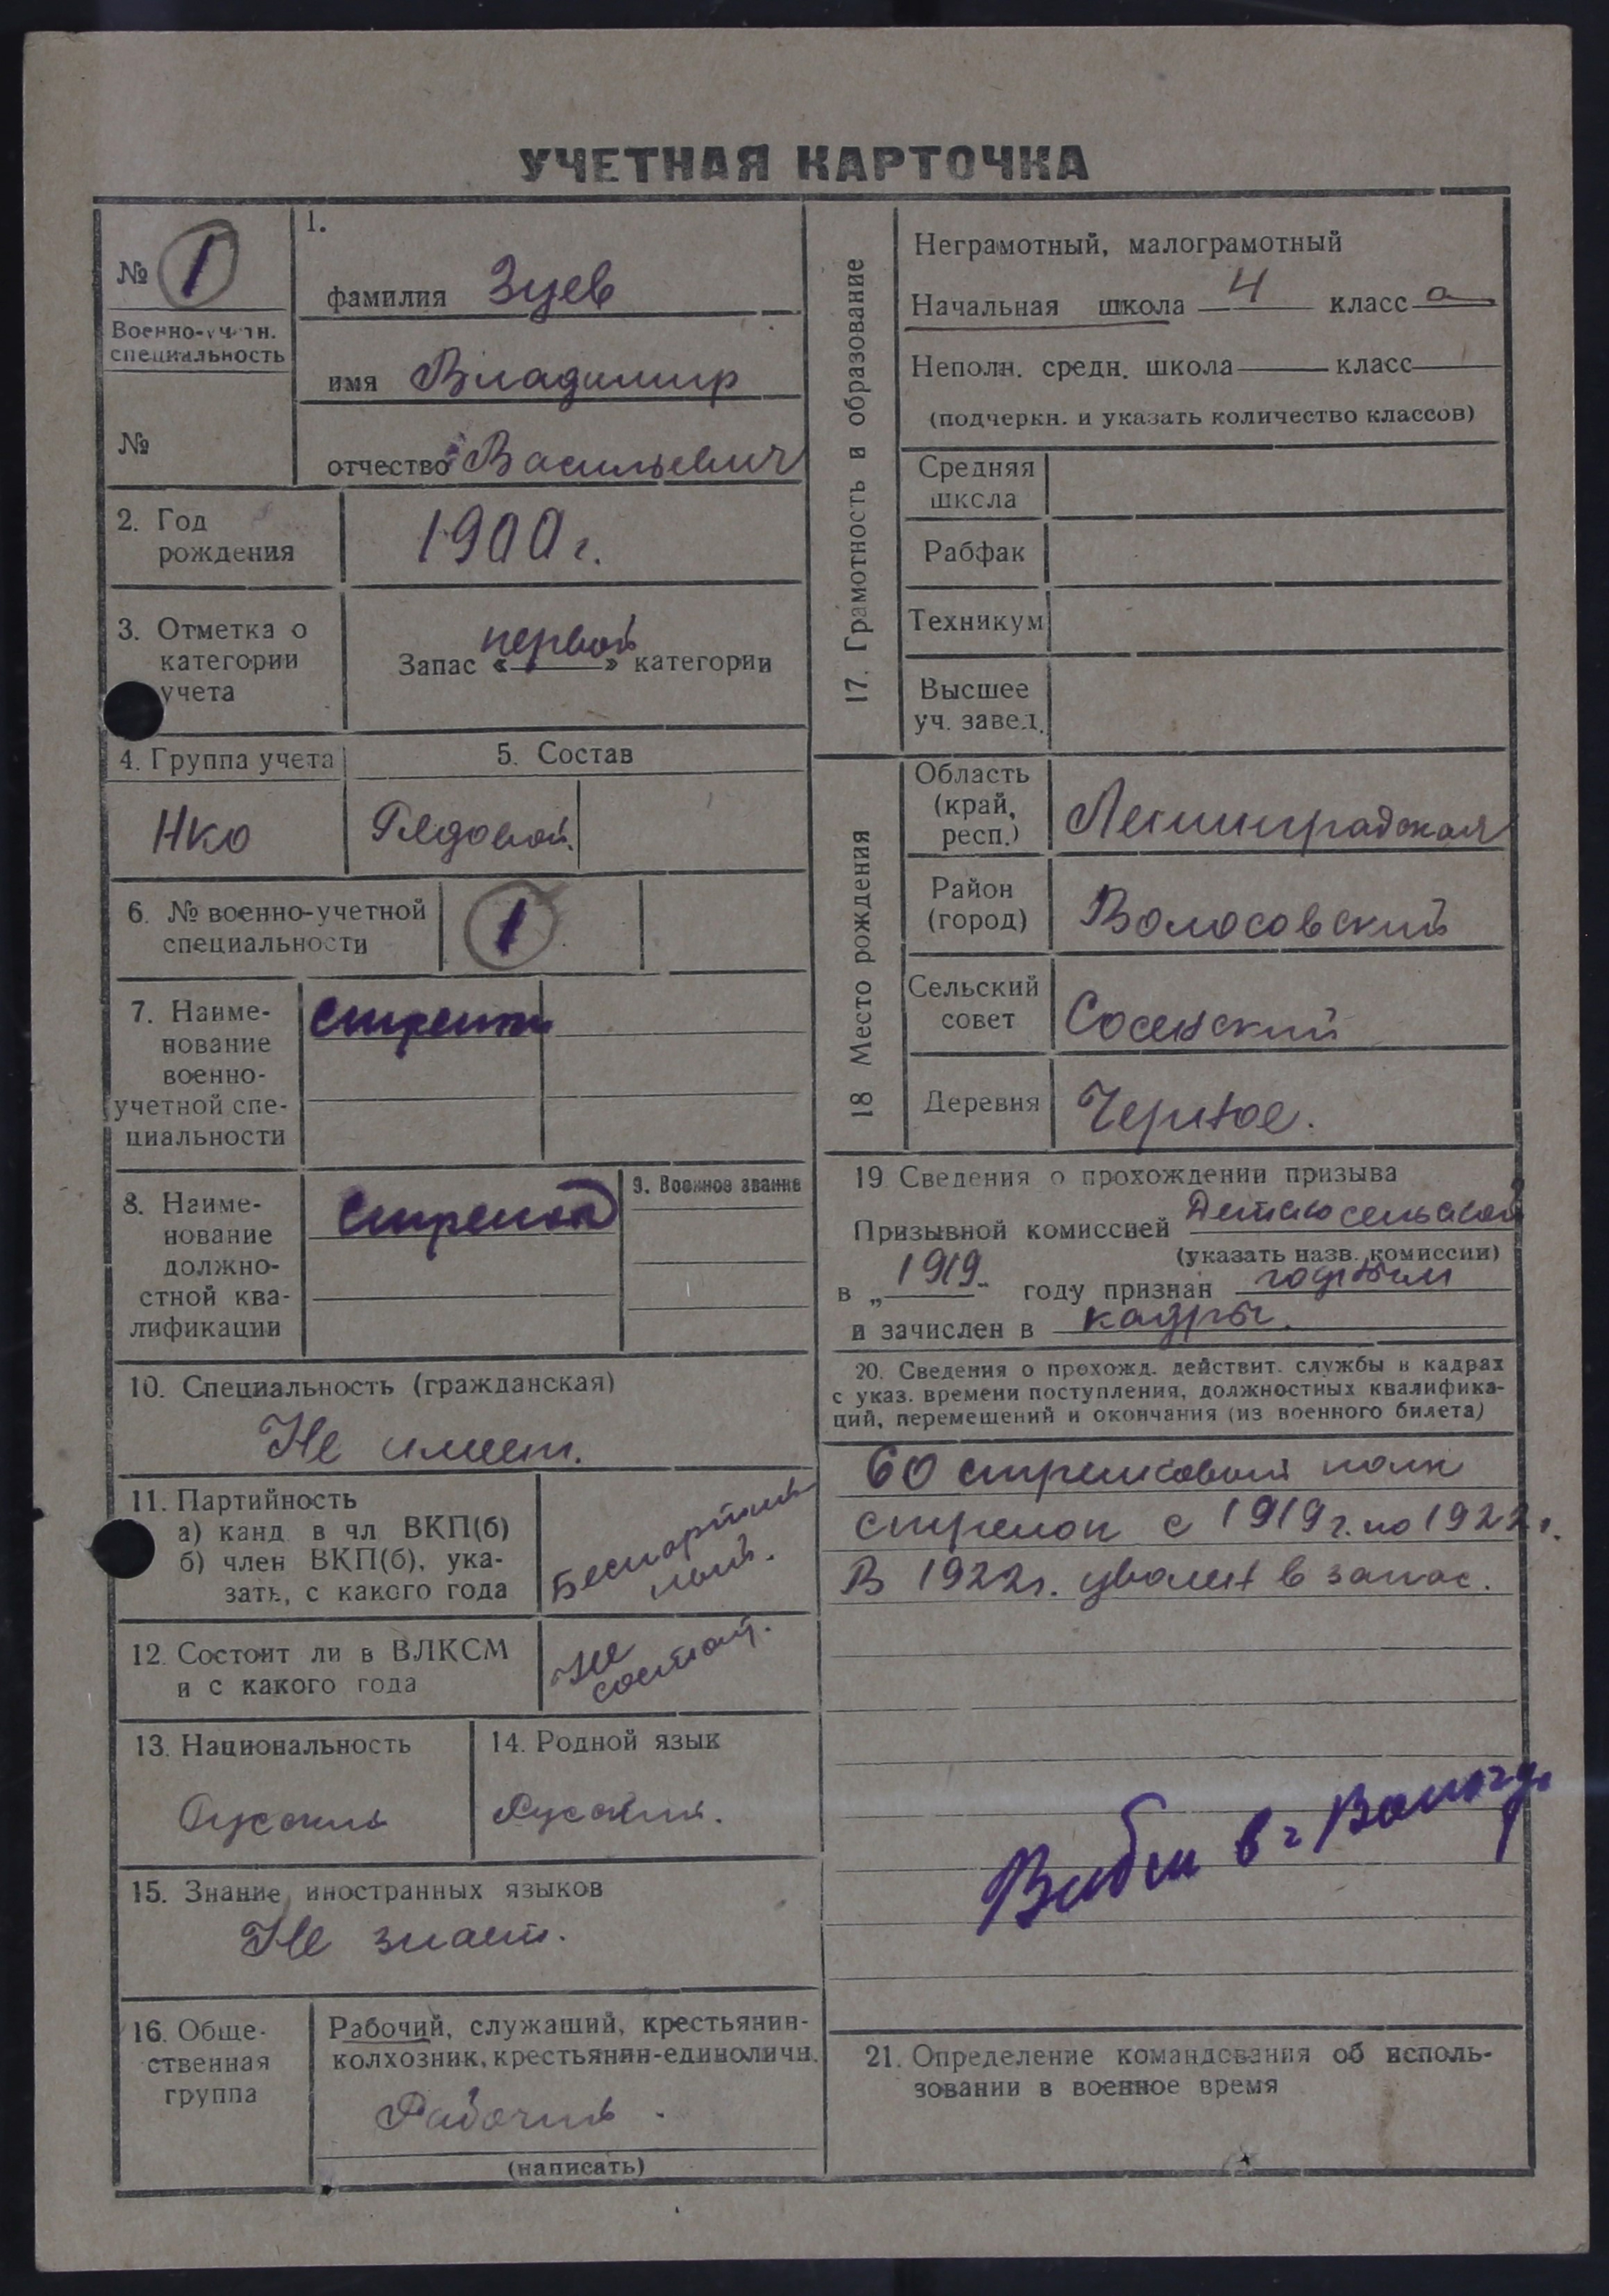 УЧЕТНАЯ КАРТОЧКА
№ 1
Военно-учетн.
специальность
№
1.
фамилия Зуев
имя Владимир
отчество Васильевич
2. Год
рождения
1900 г.
3. Отметка о
категории
учета
первой
Запас «____» категории
4. Группа учета
5. Состав
НКО
Рядовой.
6. № военно-учетной
специальности
1
7. Наиме-
нование
военно-
учетной спе-
циальности
8. Наиме-
нование
должно-
стной ква-
лификации
стрелок
9. Военное звание
10. Специальность (гражданская)
Не имеет.
11. Партийность
а) канд. в чл ВКП(б)
б) член ВКП(б), ука-
зать, с какого года
Беспартий-
ный.
12. Состоит ли в ВЛКСМ
и с какого года
Не
состоит.
13. Национальность
Русский
14. Родной язык
Русский.
15. Знание иностранных языков
Не знает.
16. Обще-
ственная
группа
Рабочий, служащий, крестьянин-
колхозник, крестьянин-единоличн.
Рабочий.
(написать)
17. Грамотность и образование
Неграмотный, малограмотный
Начальная школа 4 класс а
Неполн. средн. школа ____ класс ____
(подчеркн. и указать количество классов)
Средняя
школа
Рабфак
Техникум
Высшее
уч. завед.
18 Место рождения
Область
(край,
респ.)
Ленинградская
Район
(город)
Волосовский
Сельский
совет
Сосенский
Деревня
Черное.
19 Сведения о прохождении призыва
Призывной комиссией Детскосельской
(указать назв. комиссии)
в „1919" году признан годным
и зачислен в кадры.
20. Сведения о прохожд. действит. службы в кадрах
с указ. времени поступления, должностных квалифика-
ций, перемещений и окончания (из военного билета)
60 стрелковый полк
стрелок с 1919 г. по 1922 г.
В 1922 г. уволен в запас.
в г Вологду
21. Определение командования об исполь-
зовании в военное время